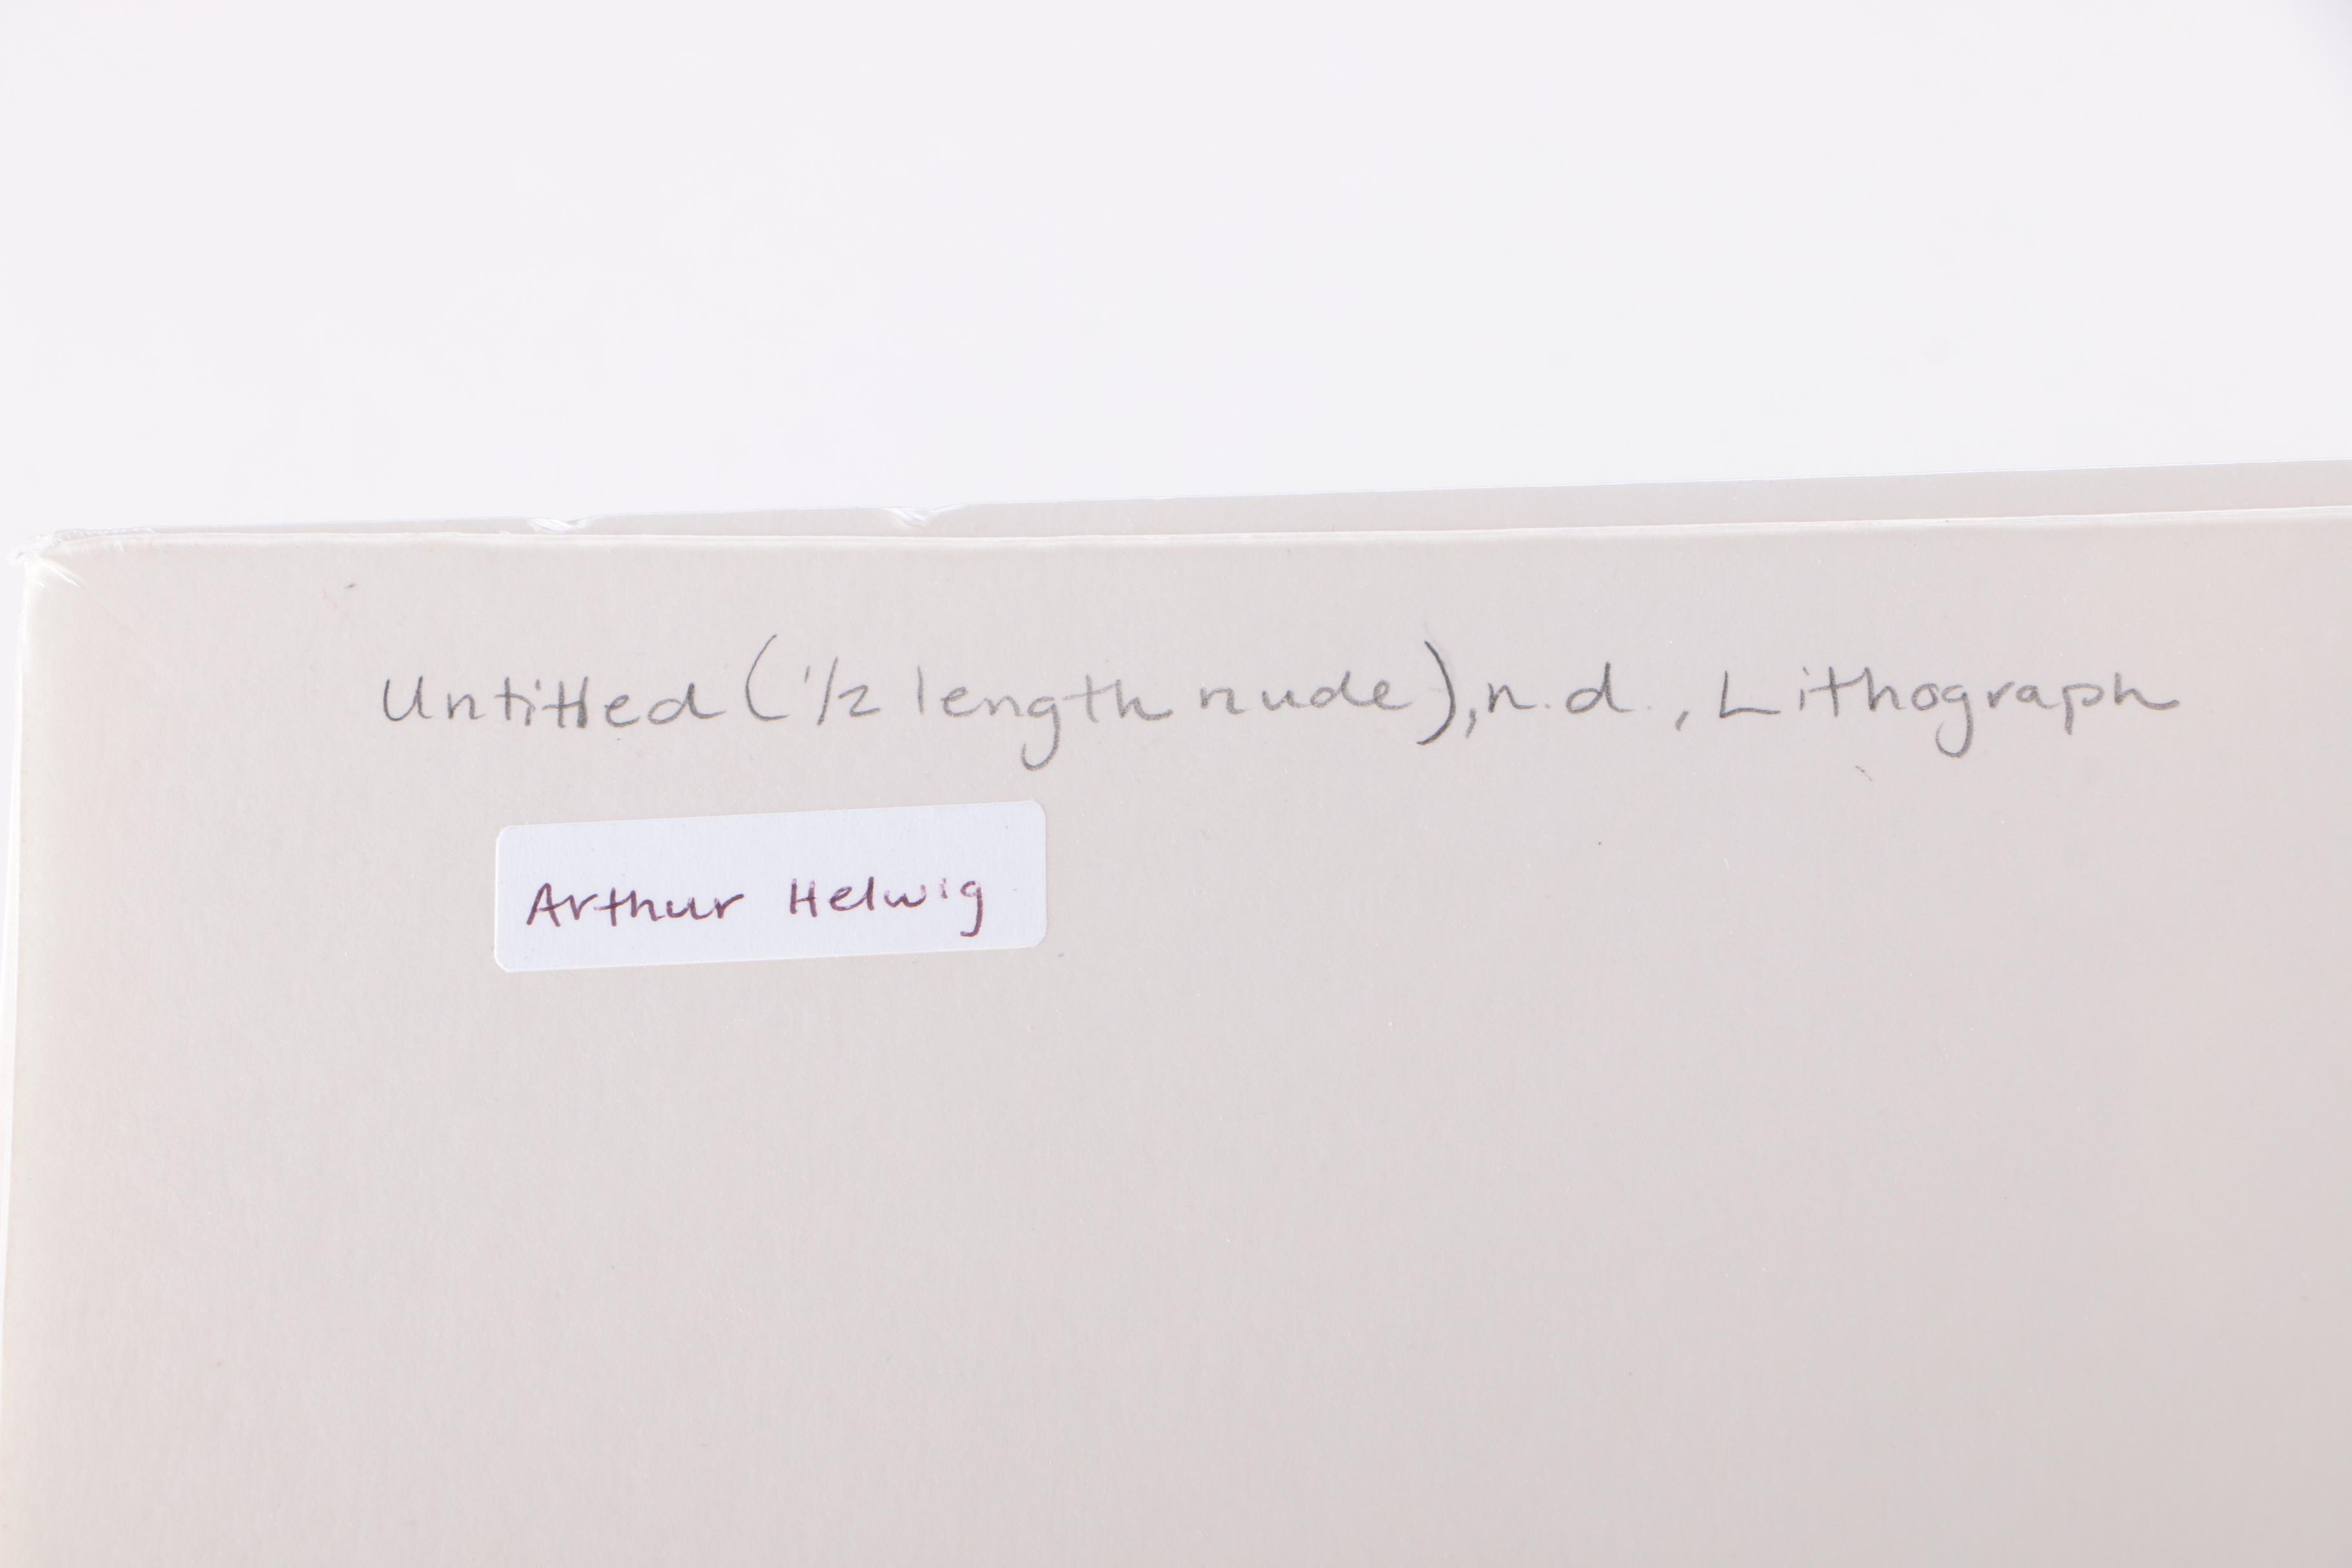 Untitled (1/2 length nude), n.d., Lithograph
Arthur Helwig